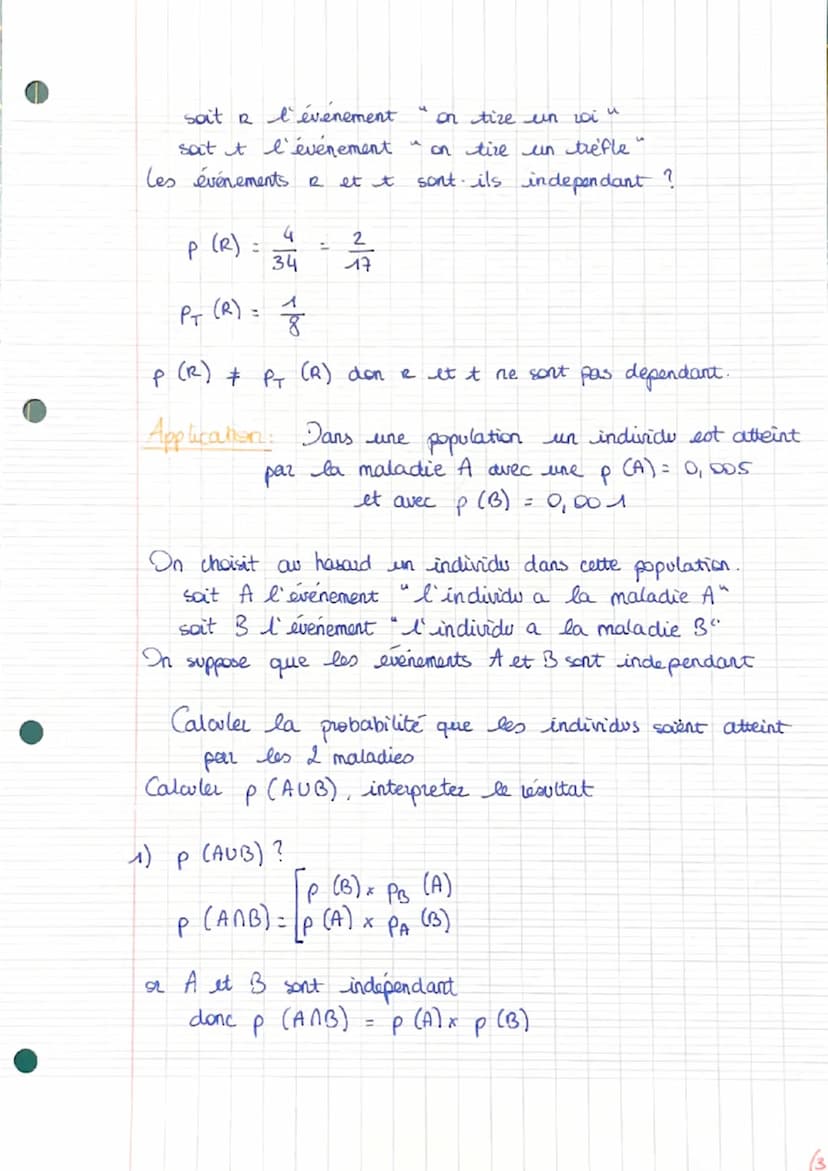 soit R l'événement " on tire un roi "
soit t l'événement " on tire un trèfle "
les événements R et t sont-ils independant ?
p (R) = 4/34 = 2/17
P_T (R) = 1/8
p (R) ≠ P_T (R) don R et t ne sont pas dépendant.
Application : Dans une population un individu est atteint
par la maladie A avec une p (A) = 0,005
et avec p (B) = 0,001
On choisit au hasard un individu dans cette population.
soit A l'événement "l'individu a la maladie A"
soit B l'événement "l'individu a la maladie B"
On suppose que les événements A et B sont independant
Calculer la probabilité que les individus soient atteint
par les 2 maladies
Calculer p (A∪B), interpretez le résultat
1) p (A∪B) ?
p (A∩B) = [ p (B) × P_B (A)
p (A) × P_A (B)
or A et B sont indépendant
donc p (A∩B) = p (A) × p (B)
(3